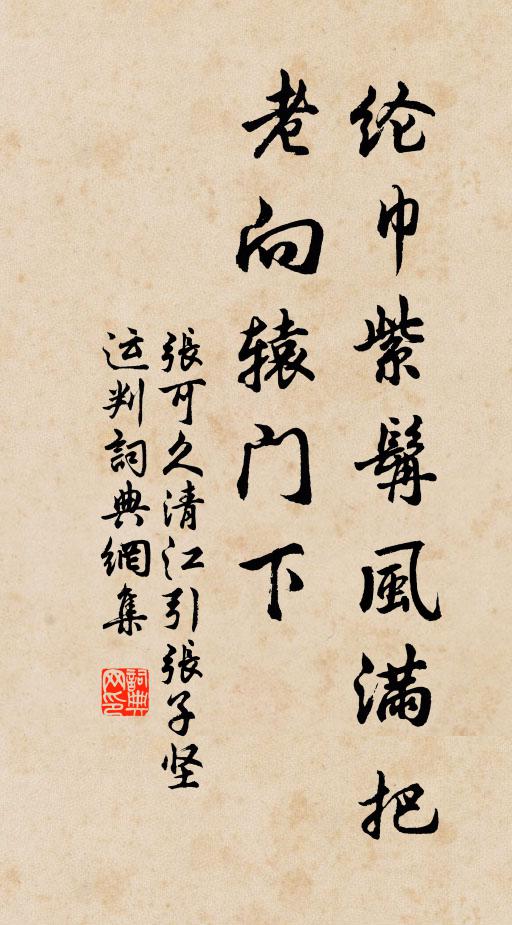 纶巾紫髯風满把
老向辕门下
張可久清江引張子坚
运判詞典網集
詞典
网印